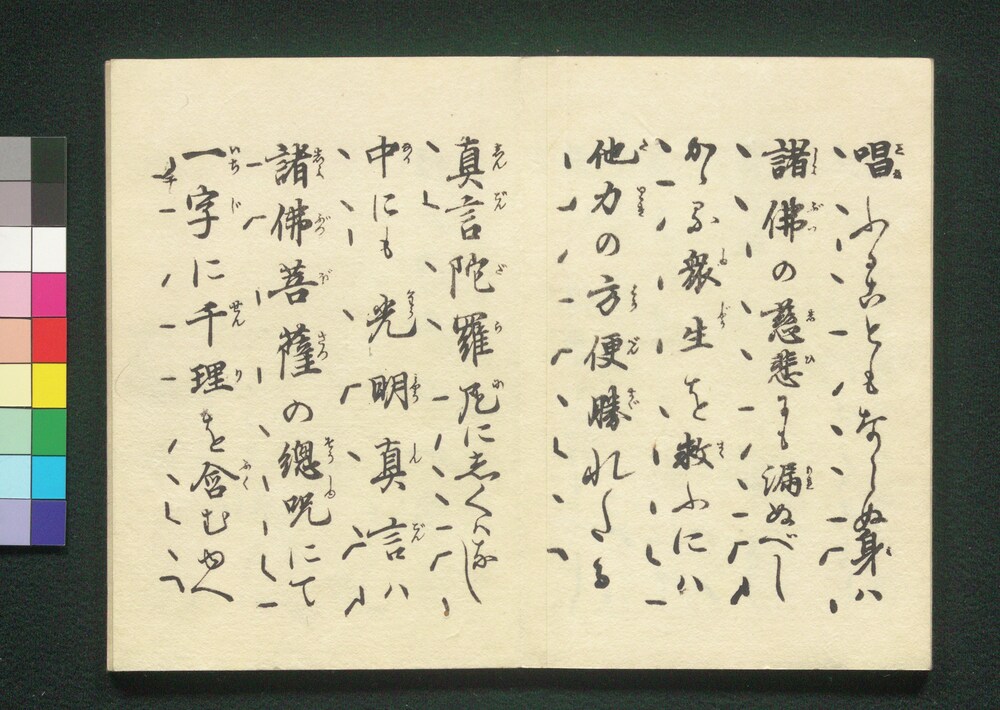 唱ふることもならぬ身ハ
諸佛の慈悲にも漏ぬべし
かゝる衆生を救ふにハ
他力の方便勝れたる
真言陀羅尼にしくハなし
中にも光明真言ハ
諸佛菩薩の總呪にて
一字に千理を含むゆへ